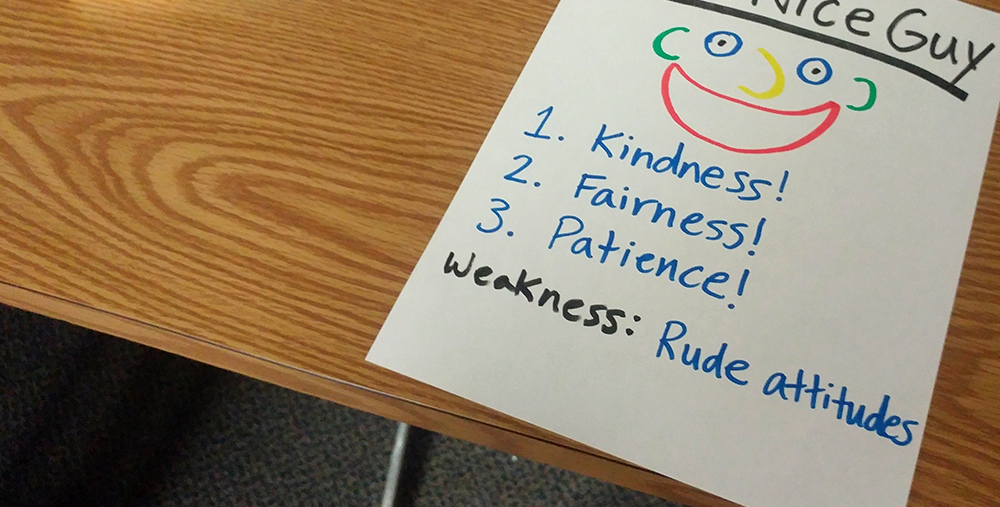 Nice Guy
1. Kindness!
2. Fairness!
3. Patience!
Weakness: Rude attitudes